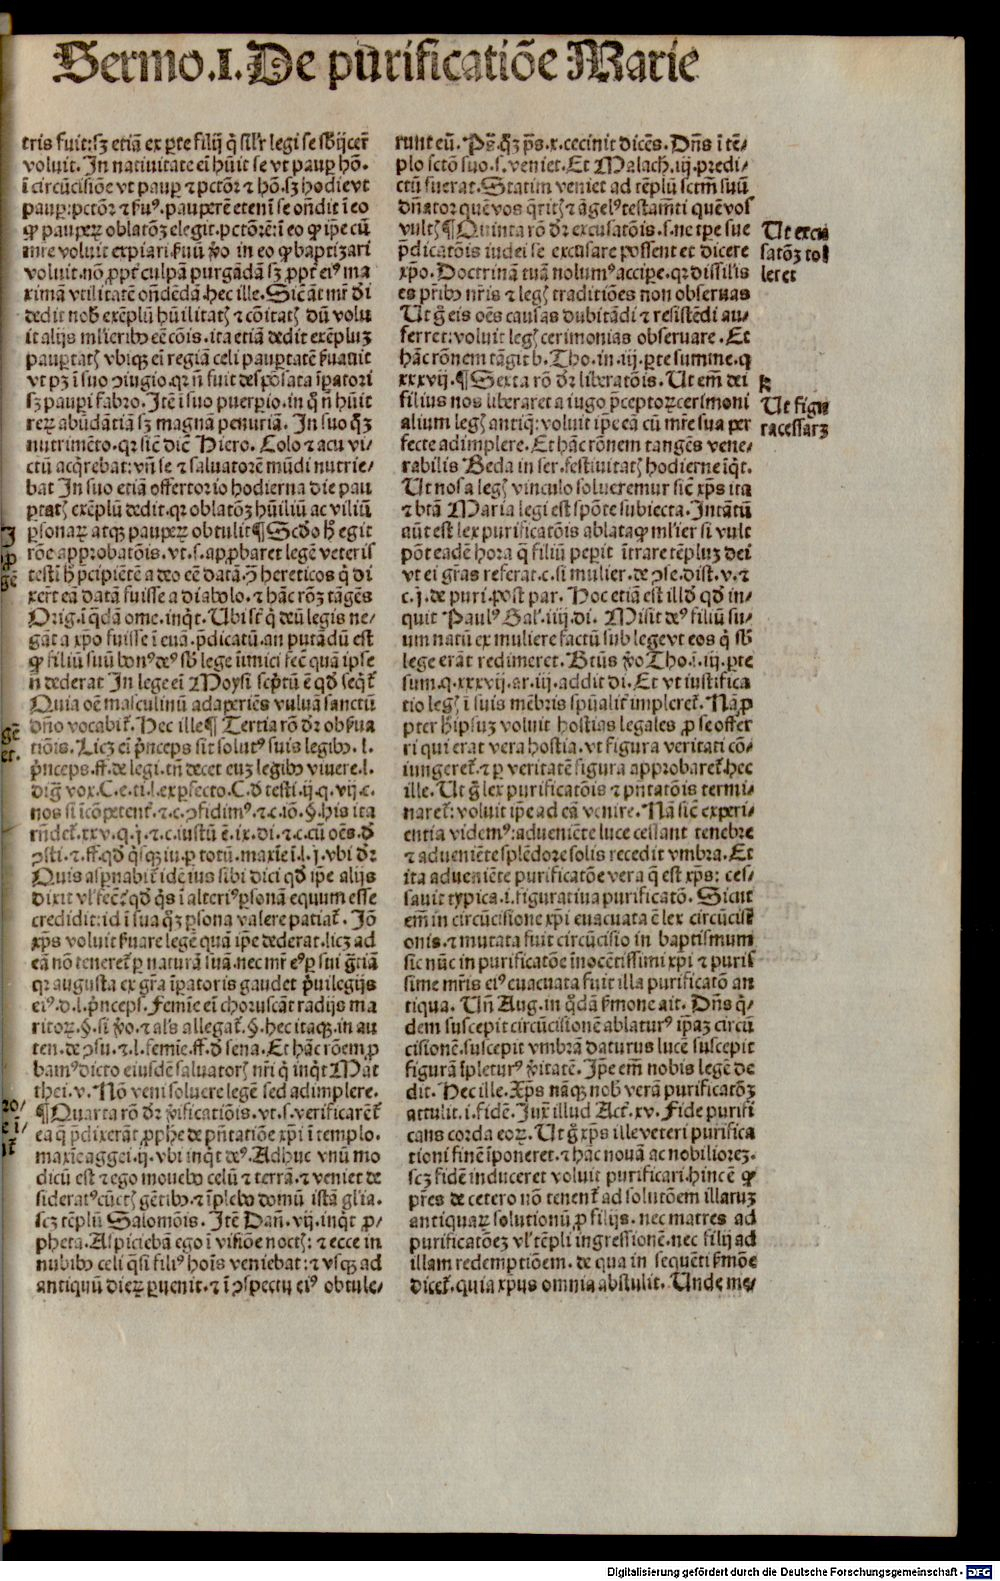 Sermo.I.De purificatiõe Marie
tris fuit:sꝫ etiã ex ꝑte filij q̃ sil'r legi se sb̃ijcer̃
voluit. In nativitate eĩ hũit se vt pauꝑ hõ.
ĩ circũcisiõe vt pauꝑ ⁊ pctõr ⁊ hõ.sꝫ hodie vt
pauꝑ:pctõr ⁊ ẽuꝰ.pauperẽ etenĩ se oñdit ĩ eo
ꝙ pauperꝝ oblatõꝫ elegit.pctõrẽ:ĩ eo ꝙ ip̃e cũ
mr̃e voluit expiari.ẽuũ ṽo in eo ꝙ baptizari
voluit.nõ ꝓpt̃ culpã purgãdã sꝫ ꝓpt̃ eiꝰ ma
ximã vtilitatẽ oñdẽdã.hec ille.Sic̃ ãt mr̃ dĩ
dedit nob̃ exẽplũ hũilitatꝭ ⁊ cõitatꝭ dũ volu
it alijs ml'ieribꝰ eẽ cõis.ita etiã dedit exẽpluꝫ
pauꝑtatꝭ vbiqꝫ eĩ regiã celi pauꝑtatẽ ẽuauit
vt pꝫ ĩ suo ꝯiugio.qꝛ ñ fuit despõsata ĩꝑatori
sꝫ pauꝑi fabro. Itẽ ĩ suo puerꝑio.in q̃ ñ hũit
rerꝝ abũdãtiã sꝫ magnã penuriã. In suo q̃ꝫ
nutrimẽto.qꝛ sic̃ dic̃ Hiero. Colo ⁊ acu vi⸗
ctũ acq̃rebat:vñ se ⁊ saluatorẽ mũdi nutrie⸗
bat In suo etiã offertorio hodierna die pau
ꝑtatꝭ exẽplũ dedit.qꝛ oblatõꝫ hũiliũ ac viliũ
ꝑsonaꝝ atqꝫ pauperꝝ obtulit¶Scd̃o h̃ egit
rõe approbatõis.vt.s.apꝓbaret legẽ veteris
testĩ h̃ p̃cipiẽtẽ a deo eẽ datã.ꝯ̃ hereticos q̃ di
xer̃t eã datã fuisse a diabolo.⁊ hãc rõꝫ tãgẽs
Orig.ĩ q̃dã ome.inq̃t. Ubi sr̃t q̃ deũ legis ne⸗
gãt a xp̃o fuisse ĩ euã.p̃dicatũ.an putãdũ est
ꝙ filiũ suũ bonꝰ deꝰ sb̃ lege inimici fec̃ quã ip̃se
ñ dederat In lege eĩ Moysi scp̃tũ ẽ qd̃ seq̃t̃
Quia oẽ masculinũ adaperiẽs vuluã sanctũ
dño vocabit̃. Hec ille¶ Tertia rõ dr̃ obẽua
tiõis. Licꝫ eĩ p̃nceps sit solutꝰ suis legibꝰ. l.
p̃nceps.ff.de legi.tñ decet euꝫ legibꝰ viuere.l.
dig̃ vox.C.e.ti.l.exꝑfecto.C.d̃ testi.ij.q.vij.c.
nos si ĩcõpetent̃.⁊.c.ꝯfidimꝰ.⁊.c.iõ.§.his ita
rñdet̃.xxv.q.j.⁊.c.iustũ ẽ.ix.di.⁊.c.cũ oẽs.d̃
ꝯsti.⁊.ff.qd̃ q̃sqꝫ iu.ꝑ totũ.maxie ĩ.l.j.vbi dr̃
Quis aspernabit̃ idẽ ius sibi dici qd̃ ip̃e alijs
dixit vl' fec̃:qd̃ q̃s ĩ alteriꝰ ꝑsonã equum esse
credidit:id ĩ sua q̃ꝫ ꝑsona valere patiat̃. Iõ
xp̃s voluit ẽuare legẽ quã ip̃e dederat.licꝫ ad
eã nõ teneret̃ ꝑ naturã suã.nec mr̃ eꝰ ꝑ sui gr̃iã
qꝛ augusta ex gr̃a ĩꝑatoris gaudet p̃uilegijs
eiꝰ.d.l.p̃nceps. Femie eĩ choruscãt radijs ma
ritoꝝ.§.si ṽo.⁊ al's allegat̃.§.hec itaqꝫ.in au
ten.de ꝯsu.⁊.l.femie.ff.d̃ sena. Et hãc rõem ꝓ
bamꝰ dicto eiusdẽ saluatorꝭ nr̃i q̃ inq̃t Mat
thei.v. Nõ veni soluere legẽ sed adimplere.
¶Quarta rõ dr̃ ṽificatiõis.vt.s.verificarẽt̃
ea q̃ p̃dixerãt ꝓphe de p̃ñtatiõe xp̃i ĩ templo.
maxie aggei.ij.vbi inq̃t deꝰ.Adhuc vnũ mo
dicũ est ⁊ ego mouebo celũ ⁊ terrã.⁊ veniet de
sideratꝰ cũctꝭ gẽtibꝰ.⁊ ĩplebo domũ istã gl'ia.
scꝫ tẽplũ Salomõis. Itẽ Dañ.vij.inq̃t ꝓ⸗
pheta.Aspiciebã ego ĩ visiõe noctꝭ:⁊ ecce in
nubibꝰ celi q̃si filiꝰ hoĩs veniebat:⁊ vsqꝫ ad
antiquũ dierꝝ ꝑuenit.⁊ ĩ ꝯspectu eiꝰ obtule⸗
runt eũ. Ps̃.q̃ꝫ p̃s.x.cecinit dicẽs. Dñs ĩ tẽ⸗
plo sctõ suo.s.veniet. Et Malach.iij.predi⸗
ctũ fuerat.Statim veniet ad tẽplũ sctm̃ suũ
dñator quẽ vos q̃ritꝭ ⁊ ãgelꝰ testam̃ti quẽ vos
vultꝭ¶Quinta rõ dr̃ excusatõis.s.ne tp̃e sue
p̃dicatõis iudei se excusare possent et dicere
xp̃o. Doctrinã tuã nolumꝰ accipe.qꝛ dissilis
es pr̃ibꝰ nr̃is ⁊ legꝭ traditiões non obseruas
Ut g̃ eis oẽs causas dubitãdi ⁊ resistẽdi au⸗
ferret:voluit legꝭ cerimonias obseruare. Et
hãc rõnem tãgit b.Tho.in.iij.ꝑte summe.q
xxxvij.¶Sexta rõ dr̃ liberatõis. Ut em̃ dei
filius nos liberaret a iugo p̃ceptoꝝ cerimoni
alium legꝭ antiq̃:voluit ip̃e eã cũ mr̃e sua ꝑer
fecte adimplere. Et hãc rõnem tangẽs vene⸗
rabilis Beda in ser.festiuitatꝭ hodierne iq̃t.
Ut nos a legꝭ vinculo solueremur sic̃ xp̃s ita
⁊ bt̃ã Maria legi est spõte subiecta. In tãtũ
aũt est lex purificatõis ablata ꝙ ml'ier si vult
põt eadẽ hora q̃ filiũ peꝑit ĩtrare tẽpluꝫ dei
vt ei gr̃as referat.c.si mulier.de ꝯse.dist.v.⁊
c.j.de puri.post par. Hoc etiã est illd̃ qd̃ in⸗
quit Paulꝰ Gal'.iiij.di. Misit deꝰ filiũ su⸗
um natũ ex muliere factũ sub lege vt eos q̃ sb̃
lege erãt redimeret. Bt̃us ṽo Tho.ĩ.iij.ꝑte
sum.q.xxxvij.ar.iij.addit di. Et vt iustifica
tio legꝭ ĩ suis mẽbris spũalit̃ impleret̃. Nã ꝓ
pter h̃ ip̃suꝫ voluit hostias legales ꝓ se offer
ri qui erat vera hostia.vt figura veritati cõ⸗
iungeret̃.⁊ ꝑ veritatẽ figura approbaret̃.hec
ille. Ut g̃ lex purificatõis ⁊ p̃ñtatõis termi⸗
naret̃:voluit ip̃e ad eã venire. Nã sic̃ experi⸗
entia videmꝰ:adueniẽte luce cessant tenebre
⁊ adueniẽte splẽdore solis recedit vmbra. Et
ita adueniẽte purificatõe vera q̃ est xp̃s: ces⸗
sauit typica.i.figuratiua purificatõ. Sicut
em̃ in circũcisione xp̃i euacuata ẽ lex circũcisi
onis.⁊ mutata fuit circũcisio in baptismum
sic nũc in purificatõe ĩnocẽtissimi xp̃i ⁊ puris
sime mr̃is eiꝰ euacuata fuit illa purificatõ an
tiqua. Uñ Aug.in q̃dã ẽmone ait. Dñs q̃⸗
dem suscepit circũcisionẽ ablaturꝰ ip̃aꝫ circũ
cisionẽ.suscepit vmbrã daturus lucẽ suscepit
figurã ĩpleturꝰ ṽitatẽ. Ip̃e em̃ nobis legẽ de
dit. Hec ille. Xp̃s nãqꝫ nob̃ verã purificatõꝫ
attulit.i.fidẽ. Iux̃ illud Act̃.xv. Fide purifi
cans corda eoꝝ. Ut g̃ xp̃s ille veteri purifica
tioni finẽ ĩponeret.⁊ hãc nouã ac nobiliorẽꝫ.
scꝫ fidẽ induceret voluit purificari.hinc ẽ ꝙ
pr̃es de cetero nõ tenent̃ ad solutõem illaruꝫ
antiquaꝝ solutionũ ꝓ filijs. nec matres ad
purificatõeꝫ vl' tẽpli ingressionẽ.nec filij ad
illam redemptiõem. de qua in sequẽti ẽmõe
dicet̃.quia xp̃us omnia abstulit. Unde me⸗
Ut
satõꝫ
leret
Ut figu
racessarꝫ